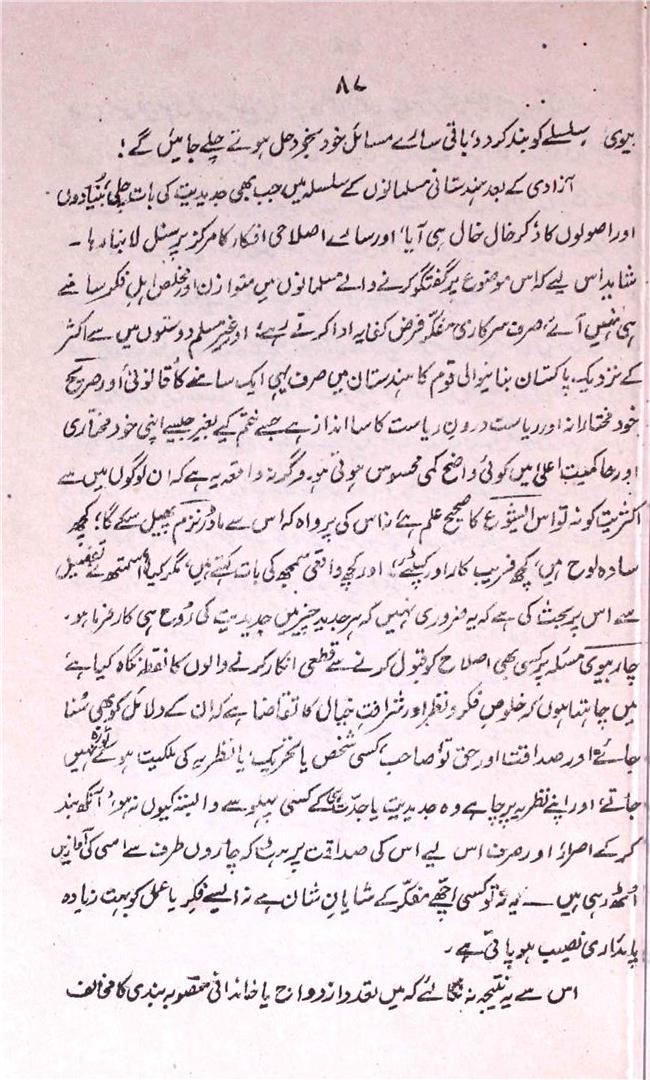 ۸۷
بیوی سلسلے کو بند کردو، باقی سارے مسائل خود بخود حل ہوتے چلے جائیں گے!
آزادی کے بعد ہندستانی مسلمانوں کے سلسلہ میں جب بھی جدیدیت کی بات چلی، بنیادوں
اور اصولوں کا ذکر خال خال ہی آیا، اور سارے اصلاحی افکار کا مرکز پرسنل لا بنا رہا۔
شاید اس لیے کہ اس موضوع پر گفتگو کرنے والے مسلمانوں میں متوازن اور مخلص اہلِ فکر سامنے
ہی نہیں آئے، صرف سرکاری مفکر فرض کفایہ ادا کرتے رہے؛ اور غیر مسلم دوستوں میں سے اکثر
کے نزدیک، پاکستان بنانیوالی قوم کا ہندستان میں صرف یہی ایک سامنے کا قانونی، اور صریح
خود مختارانہ اور ریاست درونِ ریاست کا سا انداز ہے جسے ختم کیے بغیر جیسے اپنی خود مختاری
اور حاکمیت اعلیٰ میں کوئی واضح کمی محسوس ہوتی ہو۔ وگرنہ واقعہ یہ ہے کہ ان لوگوں میں سے
اکثریت کو نہ تو اس ایشوع کا صحیح علم ہے، نہ اس کی پرواہ کہ اس سے ماڈرنزم پھیل سکے گا؛ کچھ
سادہ لوح ہیں، کچھ فریب کار اور کپٹے؛ اور کچھ واقعی سمجھ کی بات کہتے ہیں، مگر کیا اسمتھ نے تفصیل
سے اس پر بحث کی ہے کہ یہ ضروری نہیں کہ ہر جدید چیز میں جدیدیت کی روح ہی کارفرما ہو۔
چار بیوی مسئلہ پر کسی بھی اصلاح کو قبول کرنے سے قطعی انکار کرنے والوں کا نقطۂ نگاہ کیا ہے
میں چاہتا ہوں کہ خلوصِ فکر و نظر اور شرافتِ خیال کا تقاضا ہے کہ ان کے دلائل کو بھی سُنا
جائے، اور صداقت اور حق تو، صاحب، کسی شخص یا تحریک، یا نظریہ کی ملکیت ہوتے نہیں
جاتے، اور اپنے نظریہ پر چاہے وہ جدیدیت یا جدّت ہی کے کسی پہلو سے وابستہ کیوں نہ ہو، آنکھ بند
کر کے اصرار، اور صرف اس لیے اس کی صداقت پر ہٹ کہ چاروں طرف سے اسی کی آوازیں
اٹھ رہی ہیں — یہ نہ تو کسی اچھے مفکّر کے شایانِ شان ہے نہ ایسے فکر یا عمل کو بہت زیادہ
پائداری نصیب ہو پاتی ہے۔
اس سے یہ نتیجہ نہ نکالئے کہ میں تعدد ازدواج یا خاندانی منصوبہ بندی کا مخالف